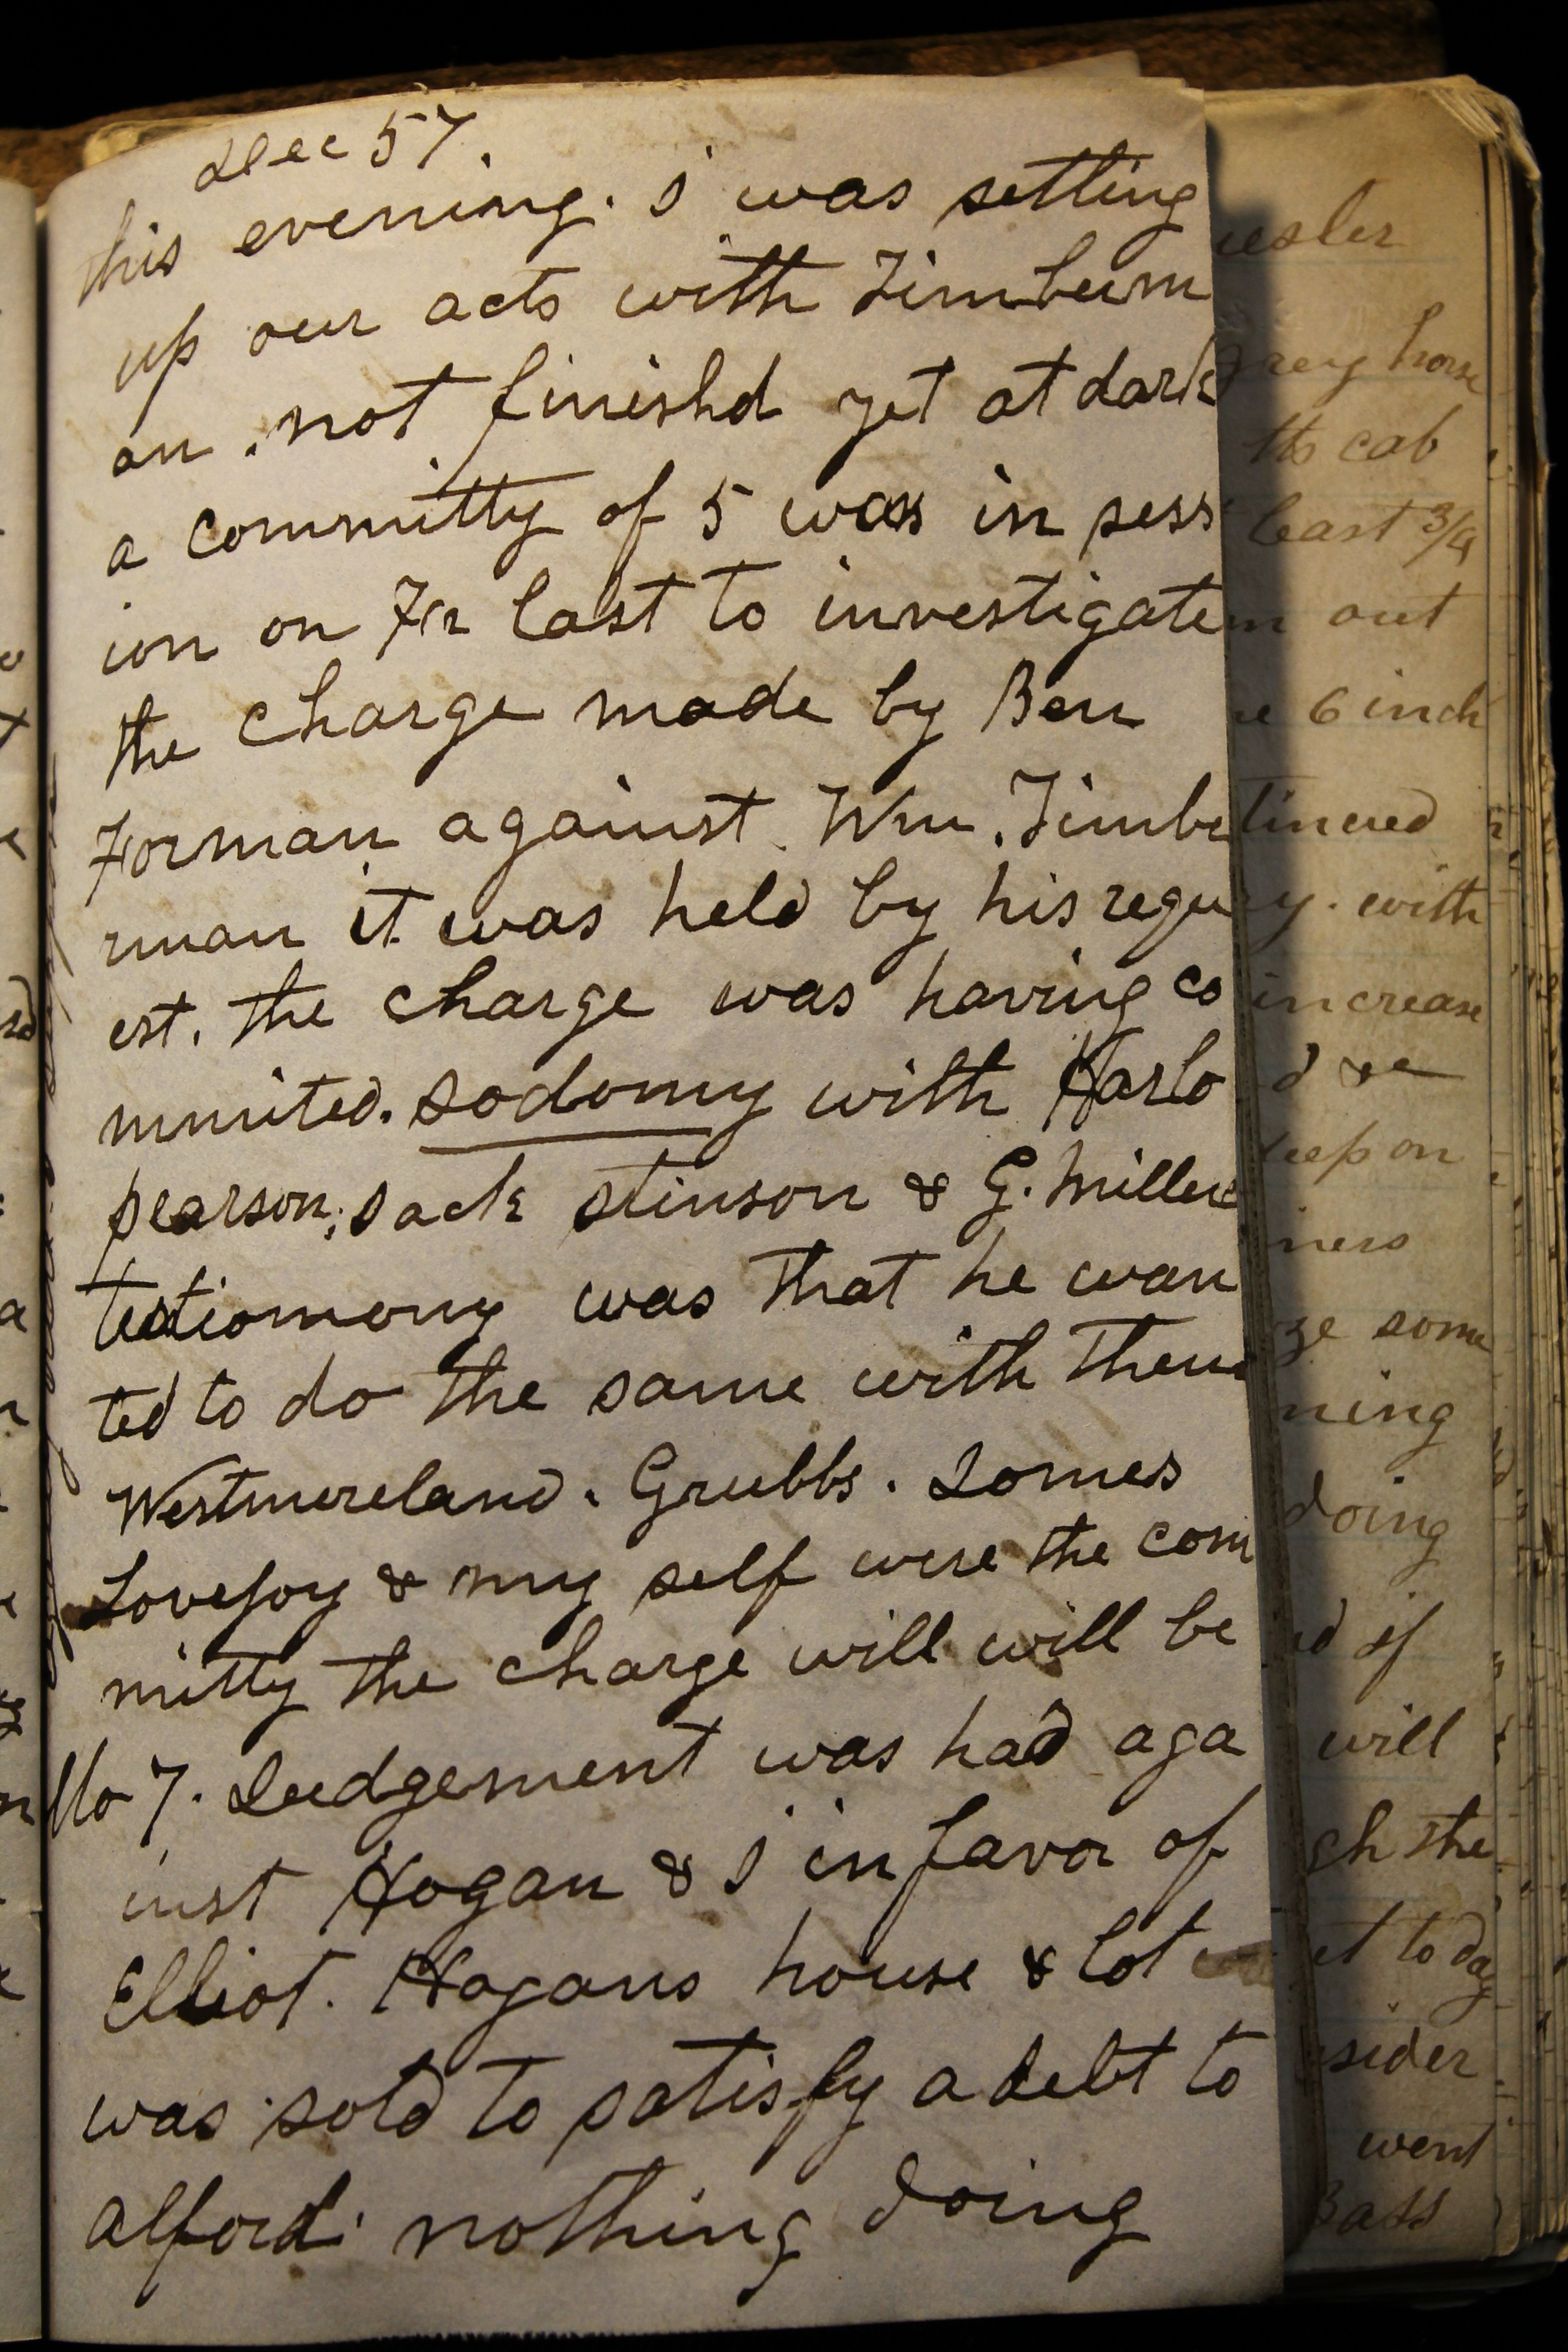 Dec 57.
this evening. I was setting
up our acts with Timberm
an. not finishd yet at dark
a committy of 5 was in sess
ion on Fr last to investigate
the charge made by Ben
Forman against. Wm. Timbe
rman it was held by his requ
est. the charge was having co
mmited. sodomy with Harlo
pearson; Jack stinson & G. Miller
testiomony was that he wan
ted to do the same with them
Westmoreland. Grubbs. Lomes
Lovejoy & my self were the com
mitty the charge will will be
No 7. Judgement was had aga
inst Hogan & I in favor of
Elliot. Hogans house & lot
was sold to satisfy a debt to
alford. nothing doing
grey horse
cab
least 3/4
out
6 inch
with
increase
d &c
keep on
some
doing
if
will
the
today
went
Bass